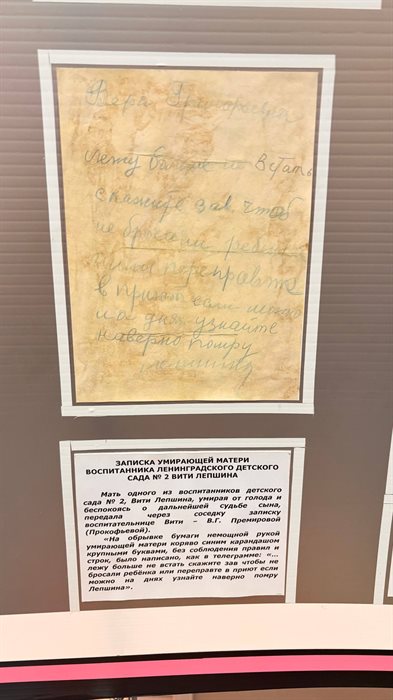 Вера Григорьевна
лежу больше не встать
скажите зав. чтоб
не бросали ребен
или переправте
в приют если можно
на днях узнайте
наверно помру
Лепшина
ЗАПИСКА УМИРАЮЩЕЙ МАТЕРИ
ВОСПИТАННИКА ЛЕНИНГРАДСКОГО ДЕТСКОГО
САДА № 2 ВИТИ ЛЕПШИНА
Мать одного из воспитанников детского
сада № 2, Вити Лепшина, умирая от голода и
беспокоясь о дальнейшей судьбе сына,
передала через соседку записку
воспитательнице Вити – В.Г. Премировой
(Прокофьевой).
«На обрывке бумаги немощной рукой
умирающей матери коряво синим карандашом
крупными буквами, без соблюдения правил и
строк, было написано, как в телеграмме: «…
лежу больше не встать скажите зав чтобы не
бросали ребёнка или переправте в приют если
можно на днях узнайте наверно помру
Лепшина».